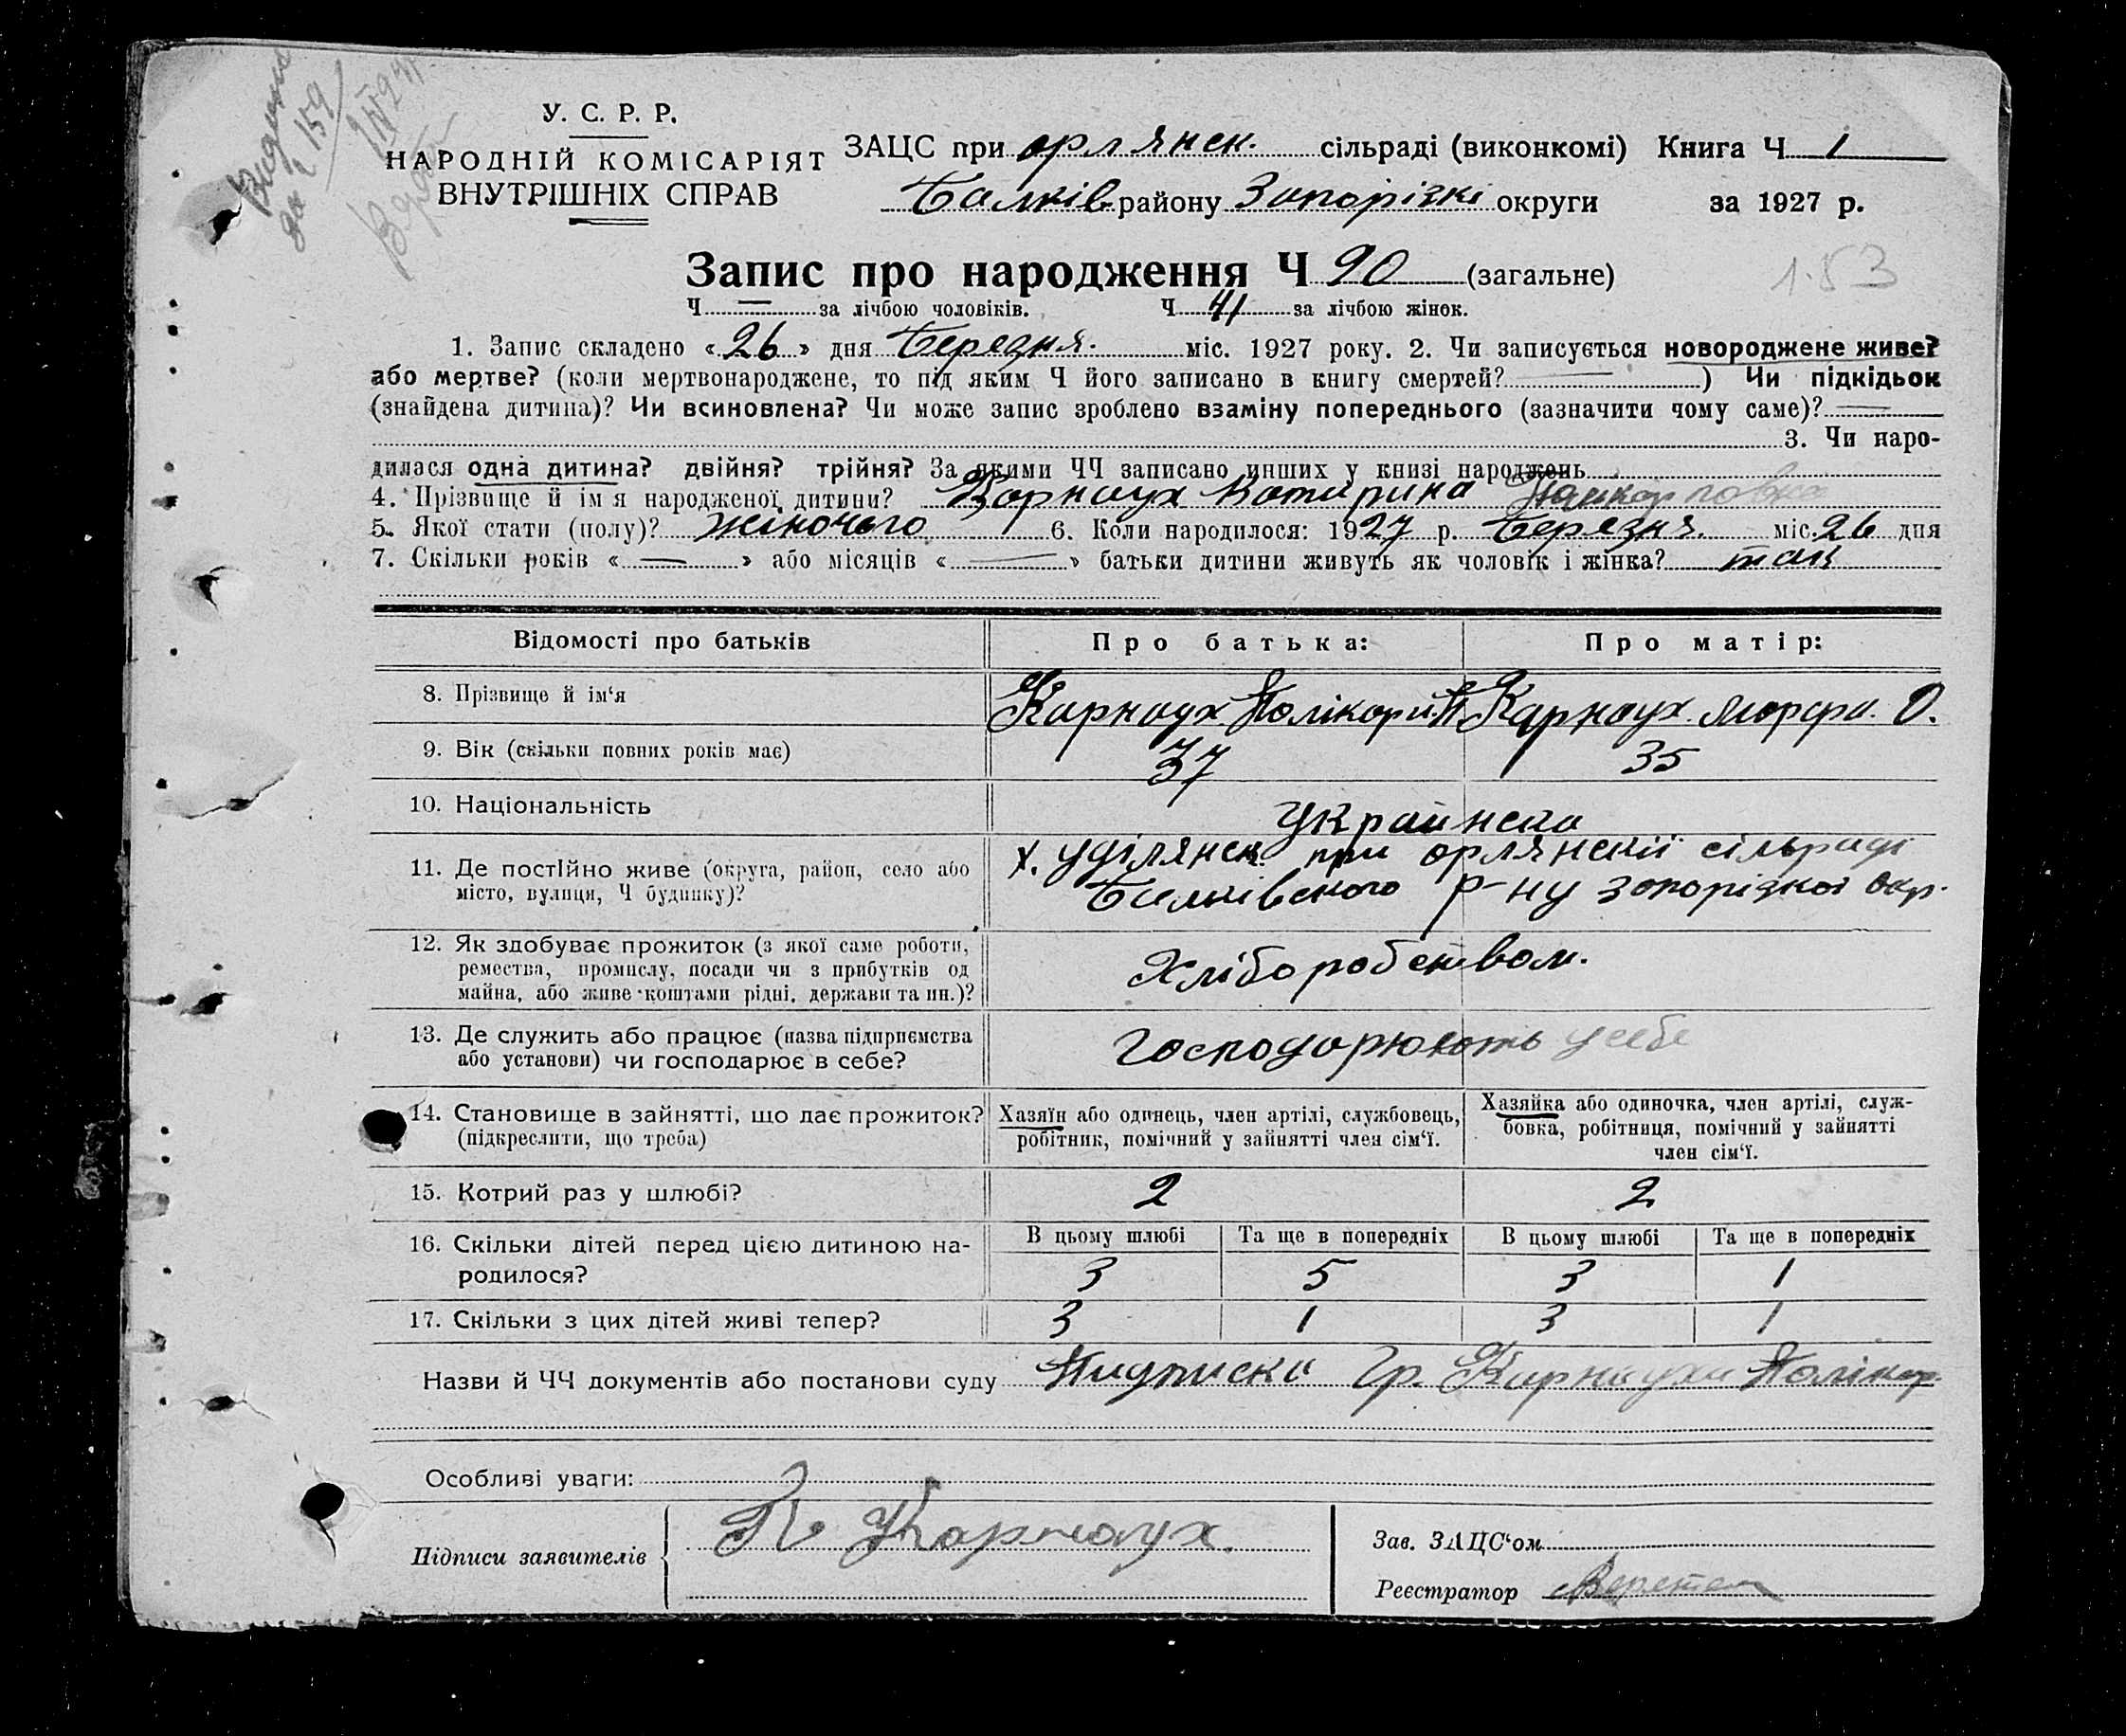 Видано
У. С. Р. Р.
НАРОДНІЙ КОМІСАРІЯТ
ВНУТРІШНІХ СПРАВ
ЗАЦС при орлянск. сільраді (виконкомі) Книга Ч 1
Балків району Запорізкі округи за 1927 р.
Запис про народження Ч 90 (загальне)
1.53
Ч — за лічбою чоловіків. Ч 41 за лічбою жінок.
1. Запис складено «26» дня Березня. міс. 1927 року. 2. Чи записується новороджене живе?
або мертве? (коли мертвонароджене, то під яким Ч його записано в книгу смертей? —) Чи підкідьок
(знайдена дитина)? Чи всиновлена? Чи може запис зроблено взаміну попереднього (зазначити чому саме)? —
3. Чи наро-
дилася одна дитина? двійня? трійня? За якими ЧЧ записано инших у книзі народжень
4. Прізвище й ім'я народженої дитини? Карнаух Катирина
5. Якої стати (полу)? жіночого 6. Коли народилося: 1927 р. Березня. міс. 26 дня
7. Скільки років «—» або місяців «—» батьки дитини живуть як чоловік і жінка? так
Відомості про батьків Про батька: Про матір:
8. Прізвище й ім'я Карнаух Полікарп П Карнаух Марфа. О.
9. Вік (скільки повних років має) 37 35
10. Національність Украинска
11. Де постійно живе (округа, район, село або
місто, вулиця, Ч будинку)?
х. уділянск при орлянскії сільраді
Балківского р-ну запорізкоі окр.
12. Як здобуває прожиток (з якої саме роботи,
ремества, промислу, посади чи з прибутків од
майна, або живе коштами рідні, держави та ин.)?
Хліборобством.
13. Де служить або працює (назва підприємства
або установи) чи господарює в себе?
Господарюють у себе
14. Становище в зайнятті, що дає прожиток?
(підкреслити, що треба)
Хазяїн або одинець, член артілі, службовець,
робітник, помічний у зайнятті член сім'ї.
Хазяйка або одиночка, член артілі, служ-
бовка, робітниця, помічний у зайнятті
член сім'ї.
15. Котрий раз у шлюбі? 2 2
16. Скільки дітей перед цією дитиною на-
родилося?
В цьому шлюбі Та ще в попередніх В цьому шлюбі Та ще в попередніх
3 5 3 1
17. Скільки з цих дітей живі тепер? 3 1 3 1
Назви й ЧЧ документів або постанови суду Пидписка Гр. Карнауха Полікар.
Особливі уваги:
Підписи заявителів П. Карнаух.
Зав. ЗАЦС'ом
Реєстратор